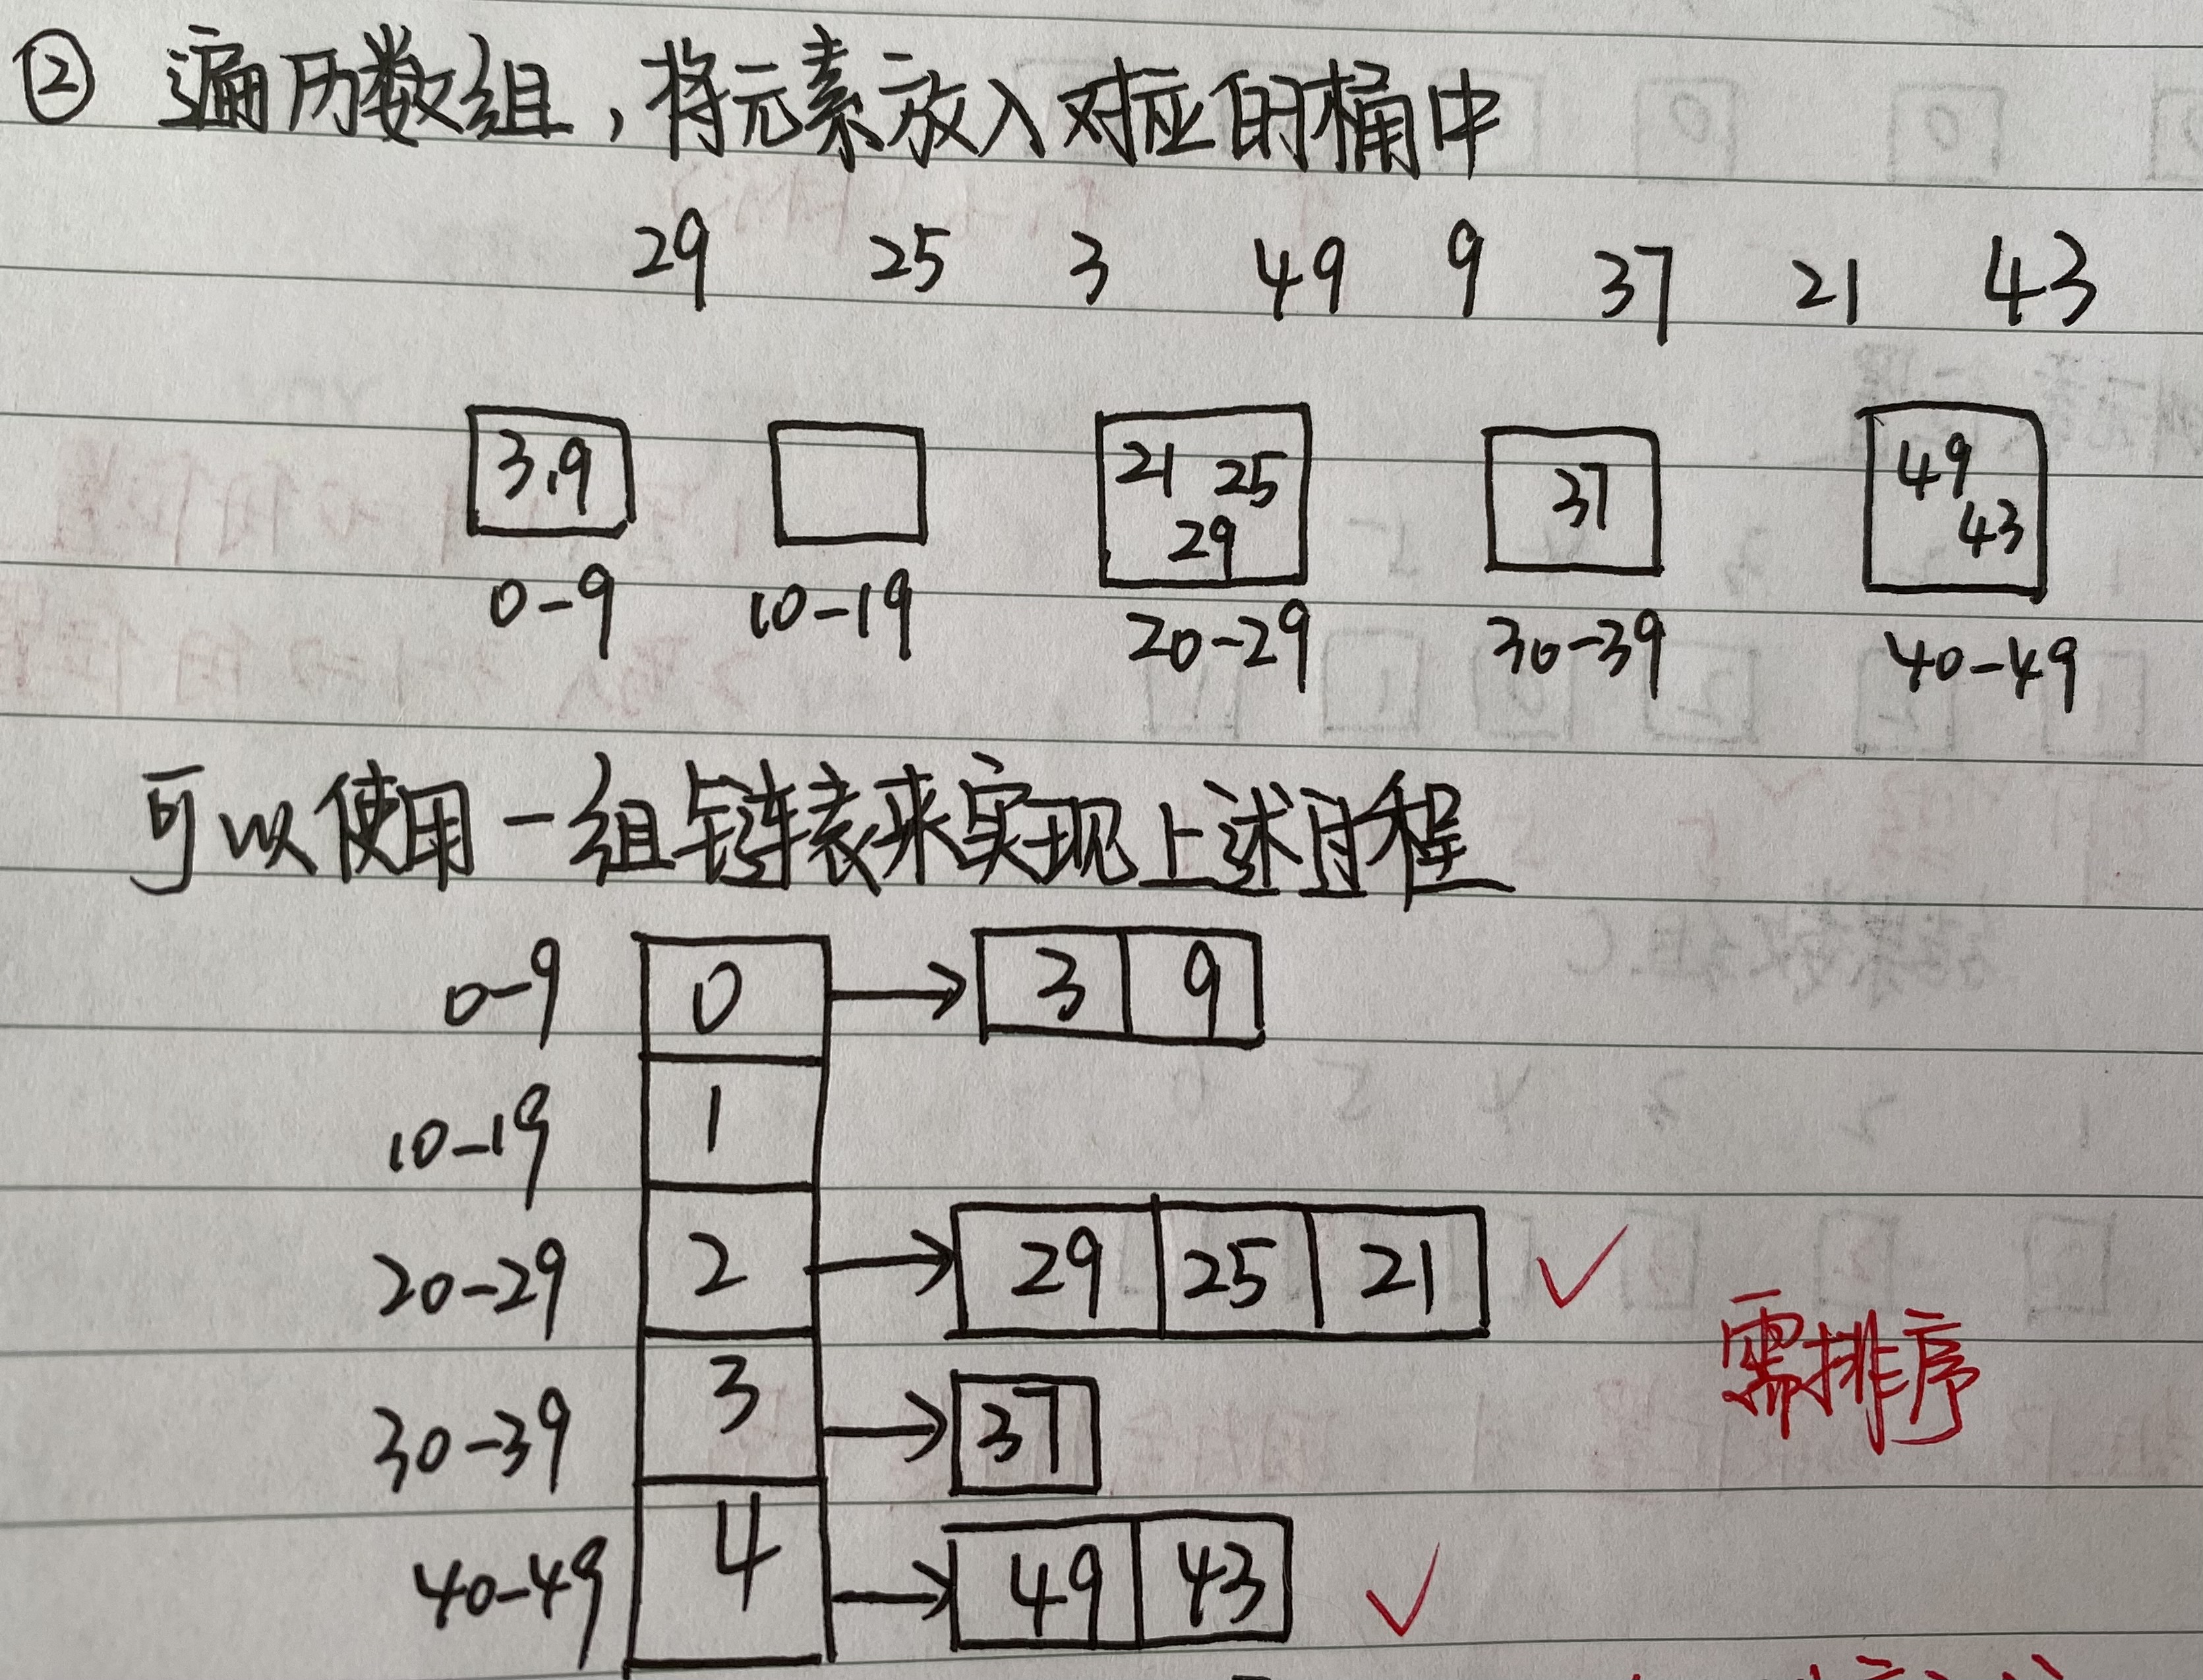 ② 遍历数组，将元素放入对应的桶中
29 25 3 49 9 37 21 43
3,9
21 25
29
37
49
43
0-9 10-19 20-29 30-39 40-49
可以使用一组链表来实现上述
0-9 0 3 9
10-19 1
20-29 2 29 25 21 ✓
需排序
30-39 3 37
40-49 4 49 43 ✓